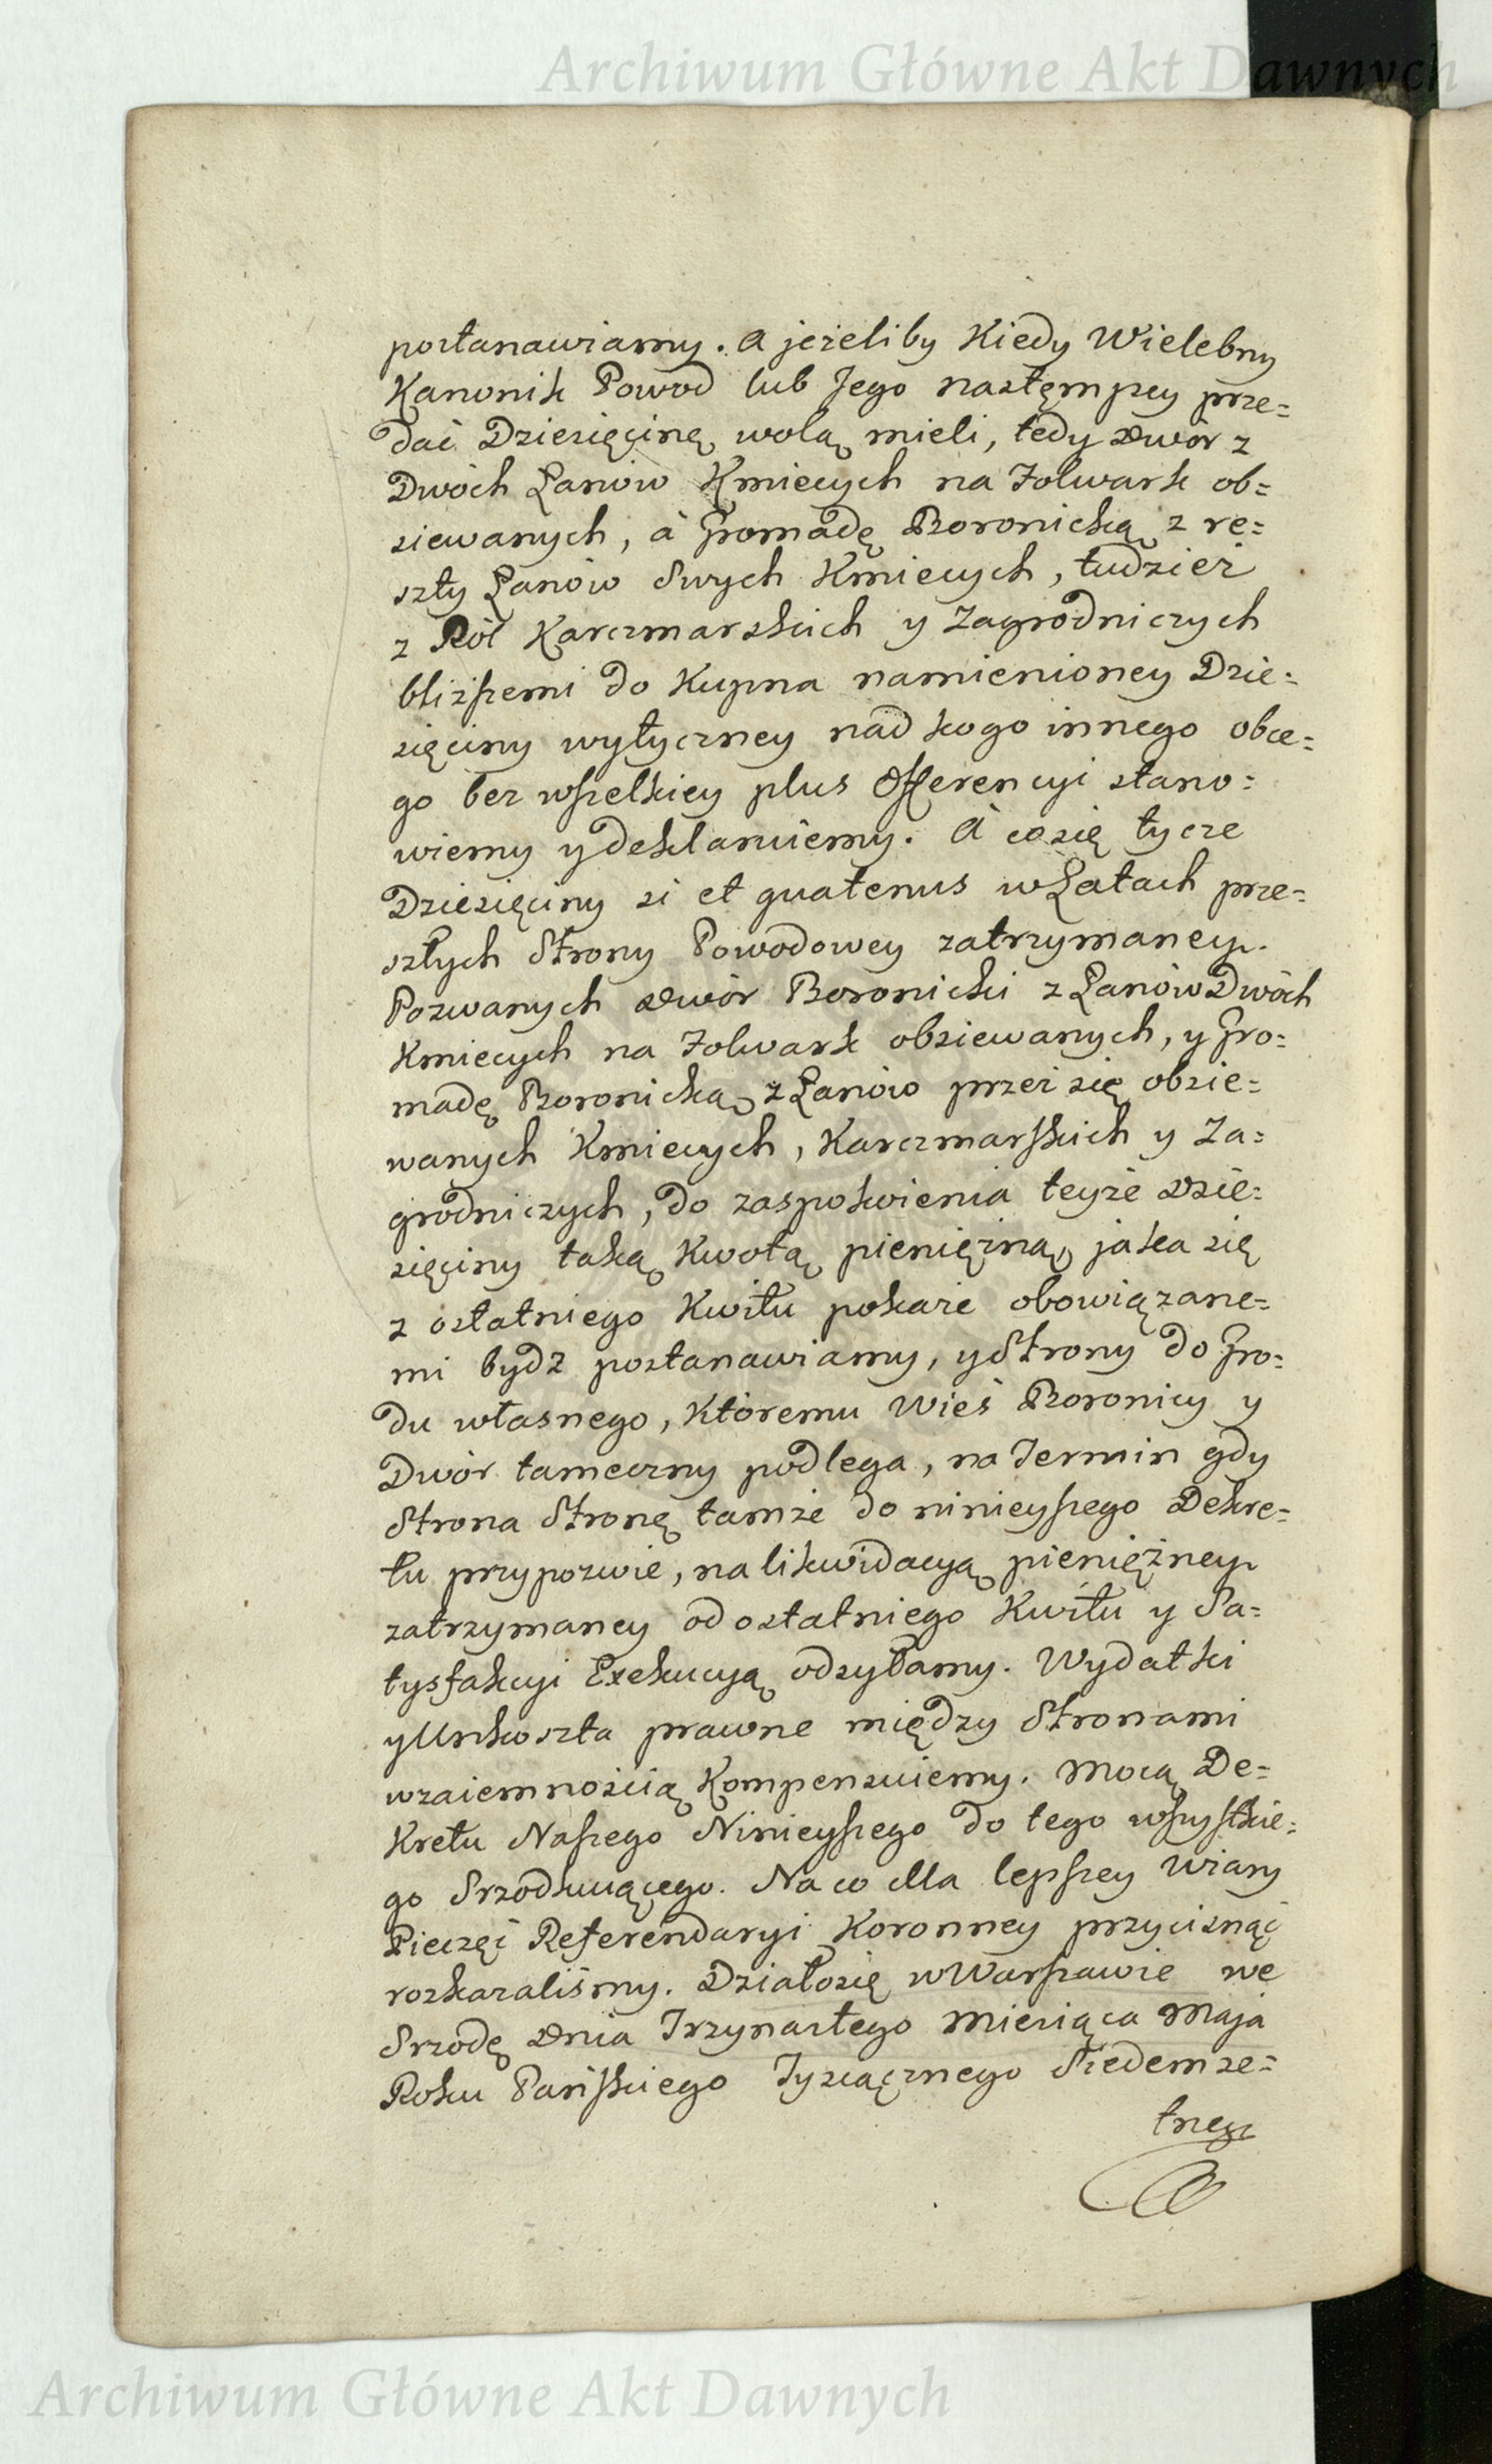 Archiwum Główne Akt Dawnych
postanawiamy. A jeżeliby Kiedy Wielebny
Kanonik Powod lub Jego następcy prze=
dać Dziesięcinę wolą mieli, tedy Dwór z
Dwóch Łanów Kmiecych na Folwark ob=
siewanych, à Gromadę Boronicką z re=
szty Łanów Swych Kmiecych, tudzież
z Ról Karczmarskich y Zagrodniczych
bliższemi do Kupna namienioney Dzie=
sięciny wytyczney nad kogo innego obce=
go bez wszelkiey plus Offerencyi stano=
wiemy y deklaruiemy. A co się tycze
Dziesięciny si et quatenus w Latach prze=
szłych Strony Powodowey zatrzymaney.
Pozwanych Dwór Boronicki z Łanów Dwóch
Kmiecych na Folwark obsiewanych, y Gro=
madę Boronicką z Łanów przez się obsie=
wanych Kmiecych, Karczmarskich y Za=
grodniczych, do zaspokoienia teyże Dzie=
sięciny taką Kwotą pieniężną, jaka się
z ostatniego Kwitu pokaże obowiązane=
mi bydź postanawiamy, y Strony do Gro=
du własnego, Któremu Wieś Boronicy y
Dwór tameczny podlega, na Termin gdy
Strona Stronę tamże do ninieyszego Dekre=
tu przypozwie, na likwidacyą pieniężney
zatrzymaney od ostatniego Kwitu y Sa=
tysfakcyi Exekucyą odsyłamy. Wydatki
y Unkoszta prawne między Stronami
wzaiemnością Kompensuiemy. Mocą De=
Kretu Naszego Ninieyszego do tego wszystkie=
go Srzodkuiącego. Na co dla lepszey Wiary
Pieczęć Referendaryi Koronney przycisnąć
rozkazaliśmy. Działo się w Warszawie we
Srzodę Dnia Trzynastego Miesiąca Maja
Roku Pańskiego Tysiącznego Siedemse=
tnego
Archiwum Główne Akt Dawnych